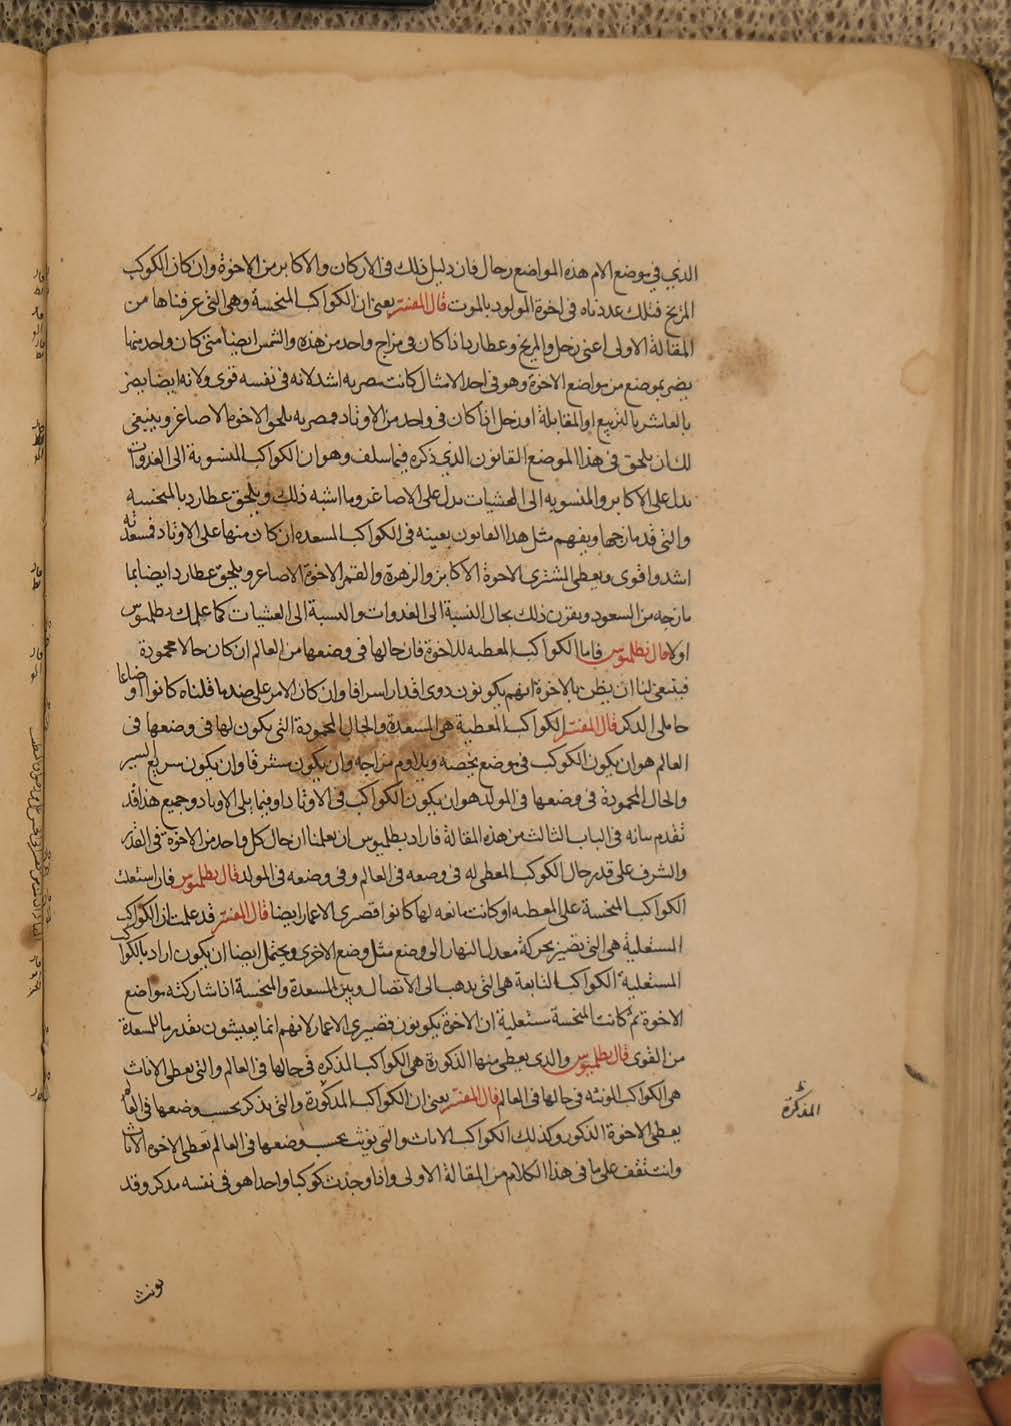 الذي في موضع الام هذه المواضع رجال فان دليل ذلك في الاركان والاكابر من الاخوة وان كان الكوكب
المريخ فتلك عددناه في اخوة المولود بالموت قال المفسر يعني ان الكواكب المنحسة وهي التي عرفناها من
المقالة الاولى اعني زحل والمريخ وعطارد اذا كان في مزاج واحد من هذه والشمس ايضا متى كان واحد منها
يضر بموضع من مواضع الاخوة وهو في احد الامثال كانت مضرته اشد لانه في نفسه قوى ولانه ايضا يضر
بالعاشر بالتربيع او المقابلة او زحل اذا كان في واحد من الاوتاد فمضرته تلحق الاخوة الاصاغر وينبغي
لك ان تلحق في هذا الموضع القانون الذي ذكره فيما سلف وهو ان الكواكب المنسوبة الى الغدوات
تدل على الاكابر والمنسوبة الى العشيات تدل على الاصاغر وما اشبه ذلك ويلحق عطارد بالمنحسة
والتي قد مازجها ويفهم مثل هذا القانون بعينه في الكواكب المسعدة ان كان منها على الاوتاد فمسعدته
اشد واقوى ويعطي المشتري الاخوة الاكابر والزهرة والقمر الاخوة الاصاغر ويلحق عطارد ايضا بما
مازجه من السعود ويقرن ذلك بحال النسبة الى الغدوات والنسبة الى العشيات كما علمك بطلميوس
اولا قال بطلميوس فاما الكواكب المعطية للاخوة فان حالها في وضعها من العالم ان كان حالا محمودة
فينبغي لنا ان يظن بالاخوة انهم يكونون ذوي اقدار اشرافا وان كان الامر على ضد ما قلناه كانوا اوضاعا
حاملي الذكر قال المفسر الكواكب المعطية هي المسعدة والحال المحمودة التي يكون لها في وضعها في
العالم هو ان يكون الكوكب في موضع يخصه ويلاوم مزاجه وان يكون مشرقا وان يكون سريع السير
والحال المحمودة في وضعها في المولد هو ان يكون الكواكب في الاوتاد او فيما يلي الاوتاد وجميع هذا قد
تقدم بيانه في الباب الثالث من هذه المقالة فاراد بطلميوس ان يعلمنا ان حال كل واحد من الاخوة في القدر
والشرف على قدر حال الكوكب المعطي له في وضعه في العالم وفي وضعه في المولد قال بطلميوس فان استعلت
الكواكب المنحسة على المعطية او كانت مانعه لها كانوا قصرى الاعمار ايضا قال المفسر قد علمت ان الكواكب
المستعلية هي التي تصير بحركة معدل النهار الى وضع مثل وضع الاخرى ويحتمل ايضا ان يكون اراد بالكواكب
المستعلية الكواكب التابعة هي التي يذهب الى الاتصال وبين المسعدة والمنحسة اذا شاركت مواضع
الاخوة ثم كانت المنحسة مستعلية ان الاخوة يكونون قصيري الاعمار لانهم انما يعيشون بقدر ما للمسعدة
من القوى قال بطلميوس والذي يعطي منها الذكورة هي الكواكب المذكرة في حالها في العالم والتي يعطي الاناث
هي الكواكب المونثه في حالها في العالم قال المفسر يعني ان الكواكب المذكورة والتي يذكر بحسب وضعها في العالم
يعطي الاخوة الذكور وكذلك الكواكب الاناث والتي يونث بحسب وضعها في العالم تعطي الاخوه الاناث
وانت تقف على ما في هذا الكلام من المقالة الاولى واذا وجدت كوكبا واحدا هو في نفسه مذكر وقد
المذكرة
يونث